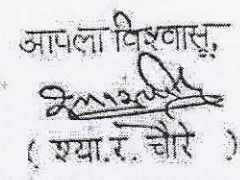 आपला विश्वासू,
( श्या. रं. चौरे )